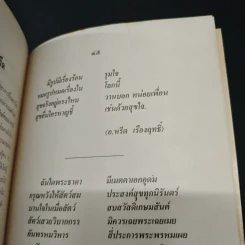 ๔๕
มีรูปมีเรื่องร้อน รุมใจ
หมดรูปหมดเรื่องใน โลกนี้
สุขจริงอยู่ตรงไหน วานบอก หน่อยเพื่อน
สุขอื่นใครหาญชี้ เช่นด้วยสุขใจ.
(อ.หรีด เรืองฤทธิ์)
ฉันใดพระธาดา มีเมตตาอกอุดม
กรุณหวังให้สัตว์สม ประสงค์สุขทุกนิรันดร์
บานใจในเมื่อสัตว์ สบสวัสดิ์เกษมสันต์
สัตว์เสวยวิบากกรร มีควรเฉยพระเฉยเมย
อันพรหมวิหาร สี่ประการพระพรหมเผย